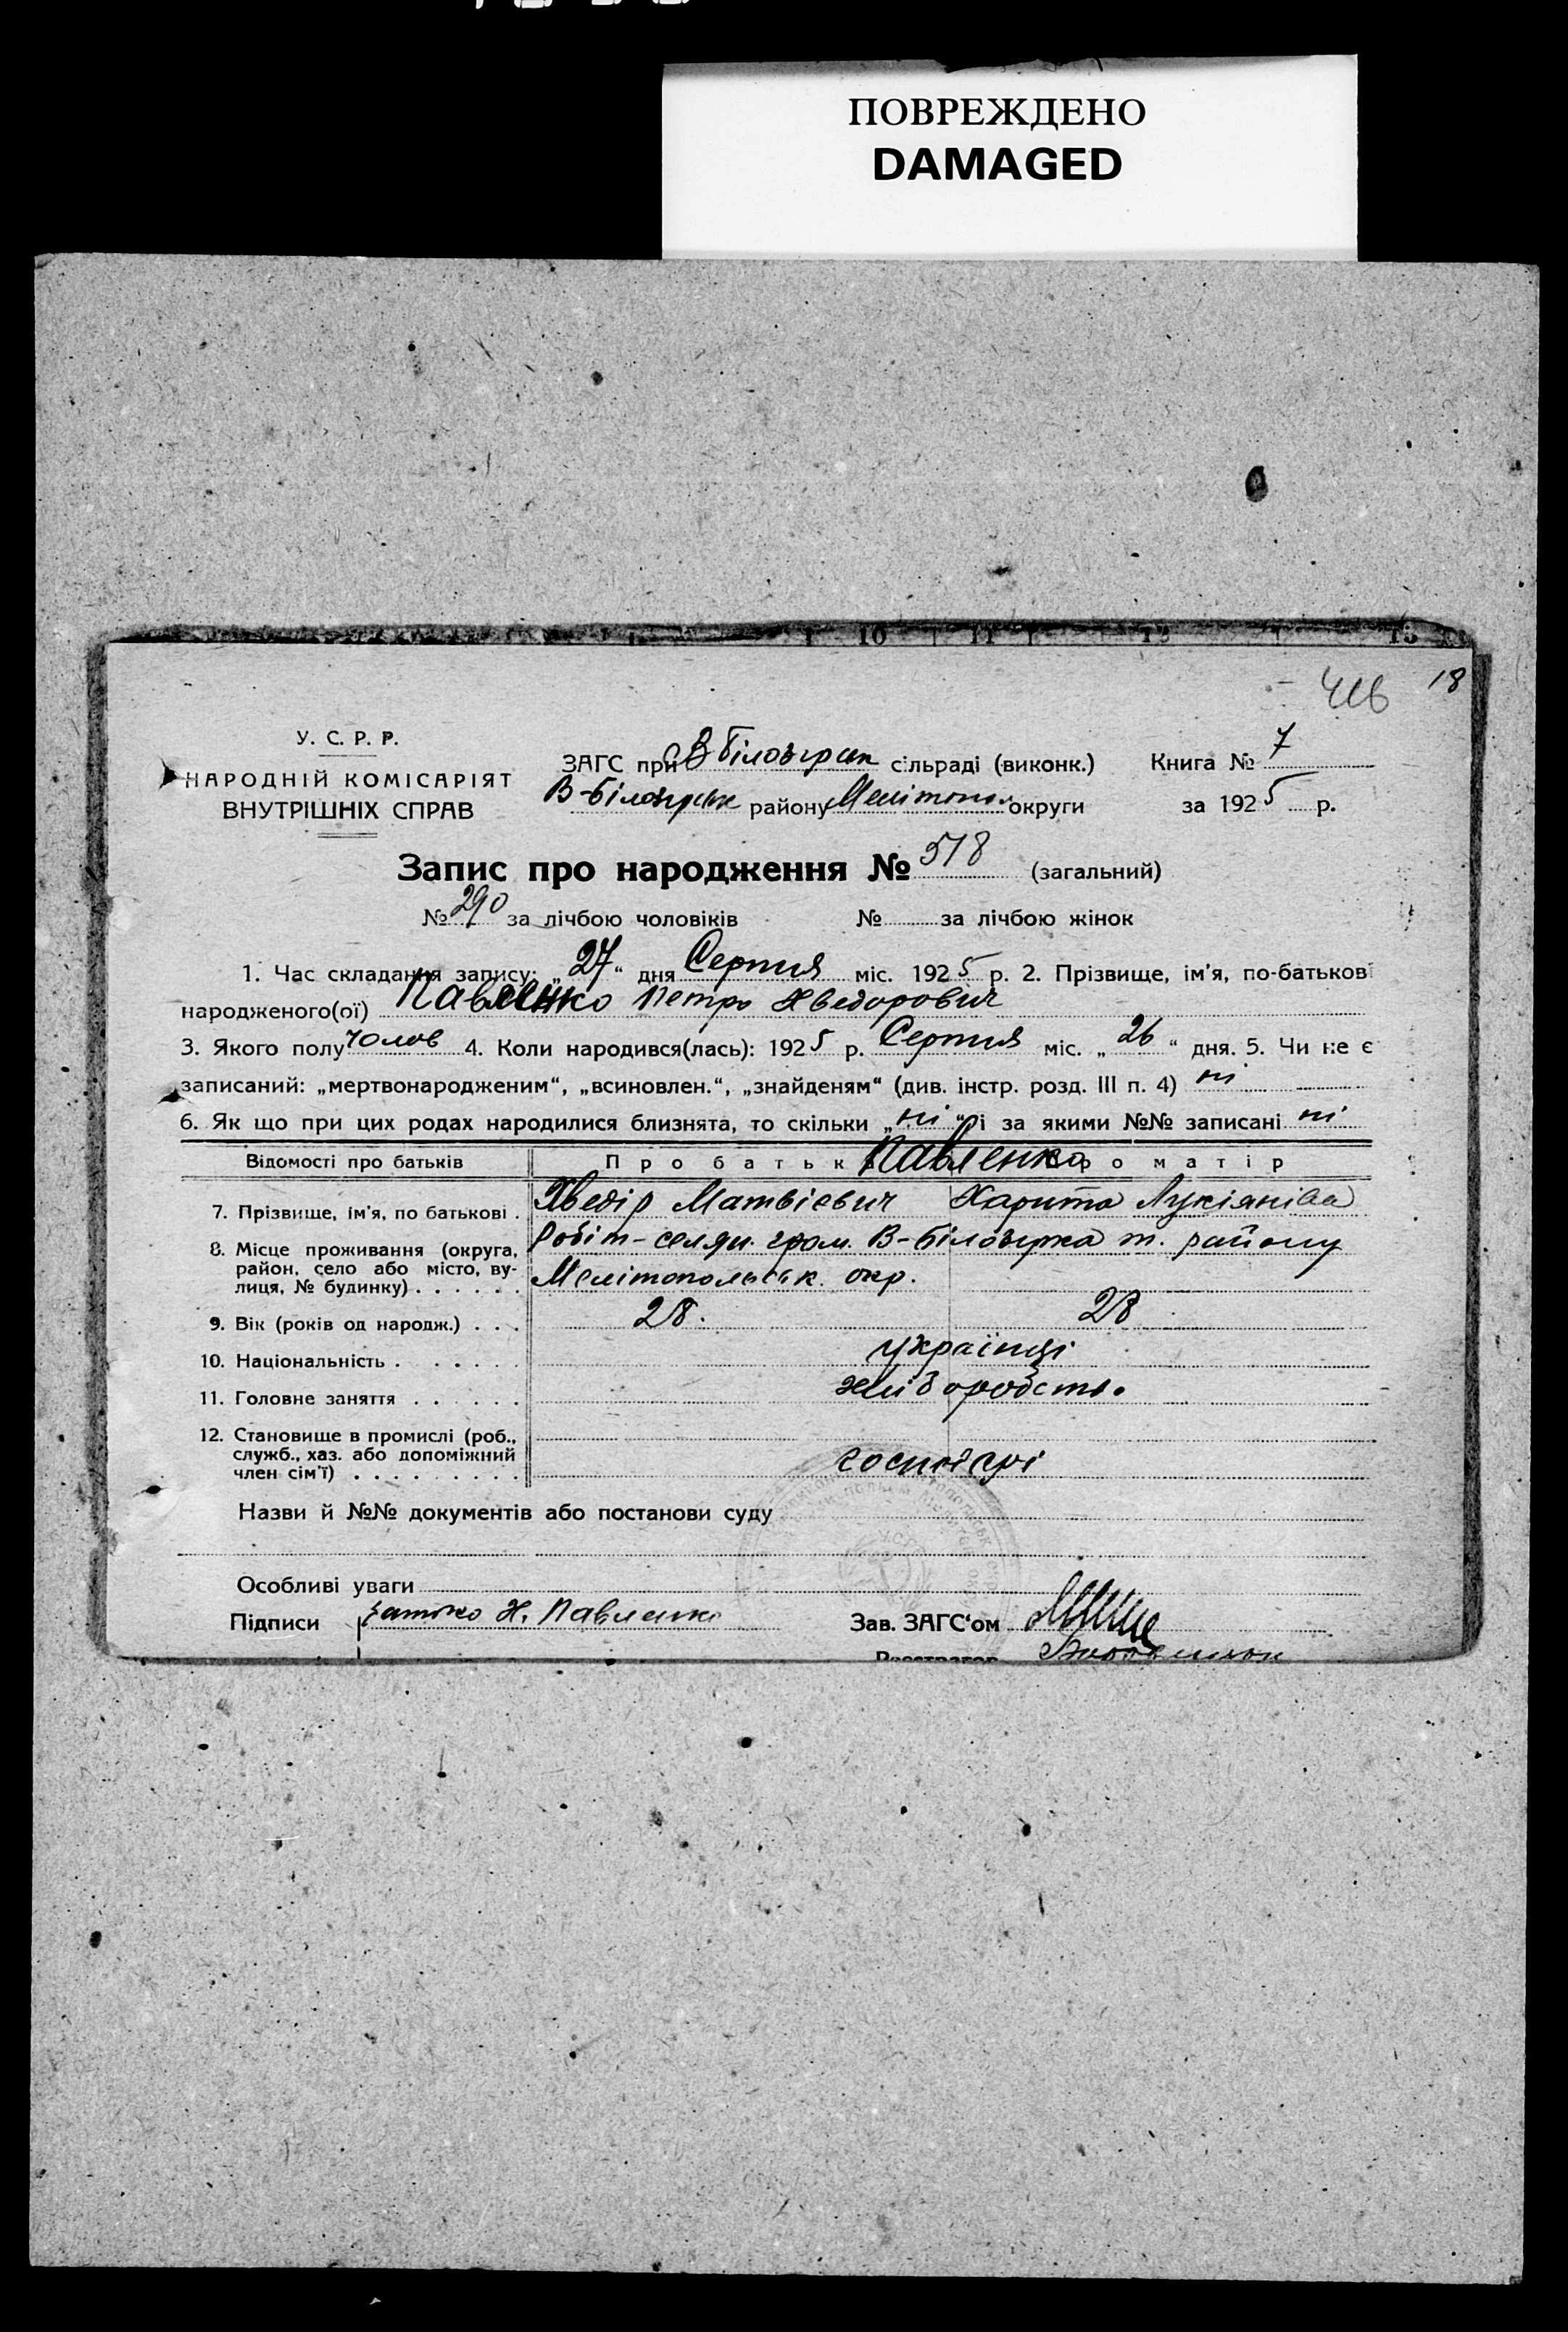 ПОВРЕЖДЕНО
DAMAGED
10 11 12 13
416 18
У. С. Р. Р.
НАРОДНІЙ КОМІСАРІЯТ
ВНУТРІШНІХ СПРАВ
ЗАГС при В Білозірск сільраді (виконк.)
В-Білозірськ району Мелітопол округи
Книга № 7
за 1925 р.
Запис про народження № 518 (загальний)
№ 290 за лічбою чоловіків № за лічбою жінок
1. Час складання запису: „27“ дня Серпня міс. 1925 р. 2. Прізвище, ім'я, по-батькові
народженого(ої) Павленко Петро Хведорович
3. Якого полу чолов 4. Коли народився(лась): 1925 р. Серпня міс. „26“ дня. 5. Чи не є
записаний: „мертвонародженим“, „всиновлен.“, „знайденям“ (див. інстр. розд. III п. 4) ні
6. Як що при цих родах народилися близнята, то скільки „ні“ і за якими №№ записані ні
Відомості про батьків Про батьк Павленко про матір
7. Прізвище, ім'я, по батькові . Хведір Матвієвич Харита Лукіянівна
8. Місце проживання (округа, район, село або місто, вулиця, № будинку) . . . . . . Робіт-селян. гром. В-Білозірка т. району
Мелітопольськ. окр.
9. Вік (років од народж.) . . . 28. 28
10. Національність . . . . . . українці
11. Головне заняття . . . . . . хліборобство
12. Становище в промислі (роб., служб., хаз. або допоміжний член сім'ї) . . . . . . . . . господарі
Назви й №№ документів або постанови суду
Особливі уваги
Підписи батько Х. Павленко Зав. ЗАГС'ом
Реєстратор